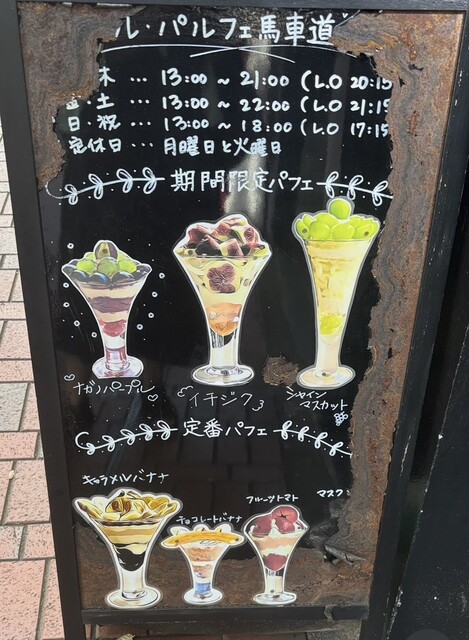 ル・パルフェ馬車道
木 … 13:00 ~ 21:00 (L.O 20:15
・土 … 13:00 ~ 22:00 (L.O 21:15
日・祝 … 13:00 ~ 18:00 (L.O 17:15
定休日 … 月曜日と火曜日
期間限定パフェ
ナガノパープル
イチジク
シャインマスカット
定番パフェ
キャラメルバナナ
チョコレートバナナ
フルーツトマト
マスク